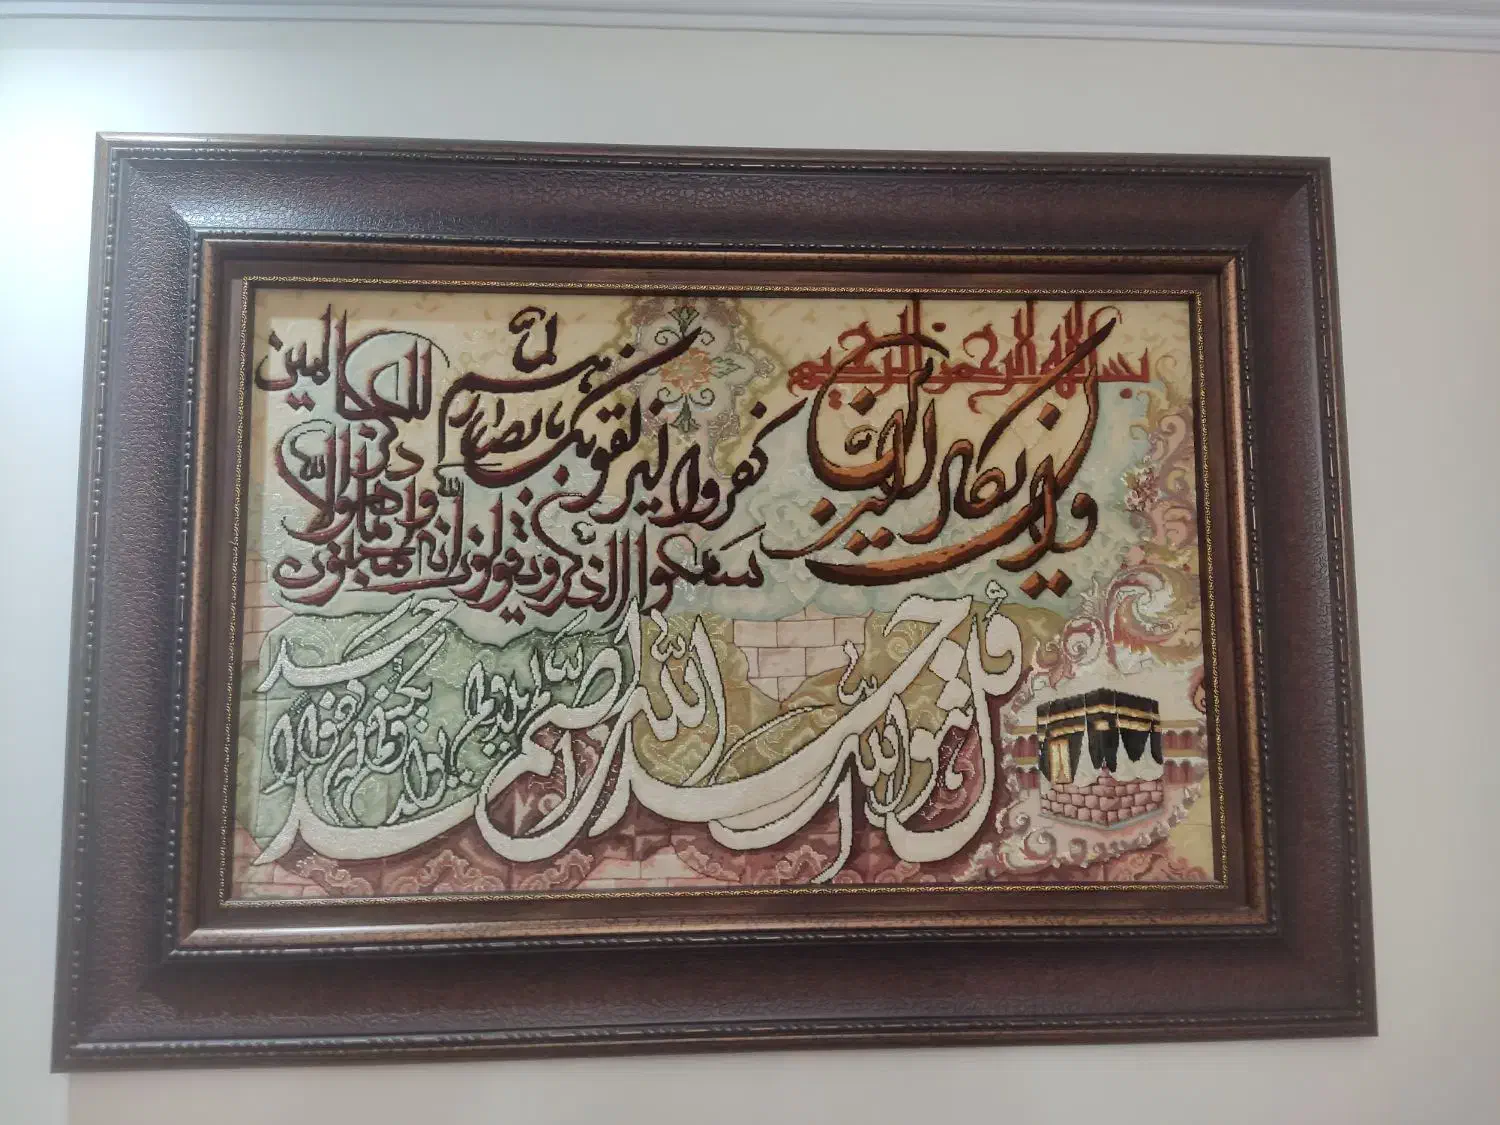 بسم الله الرحمن الرحيم
وان يكاد الذين
كفروا ليزلقونك بابصارهم لما
سمعوا الذكر ويقولون انه لمجنون
وما هو الا ذكر للعالمين
قل هو الله احد الله الصمد
لم يلد ولم يولد
ولم يكن له كفوا احد